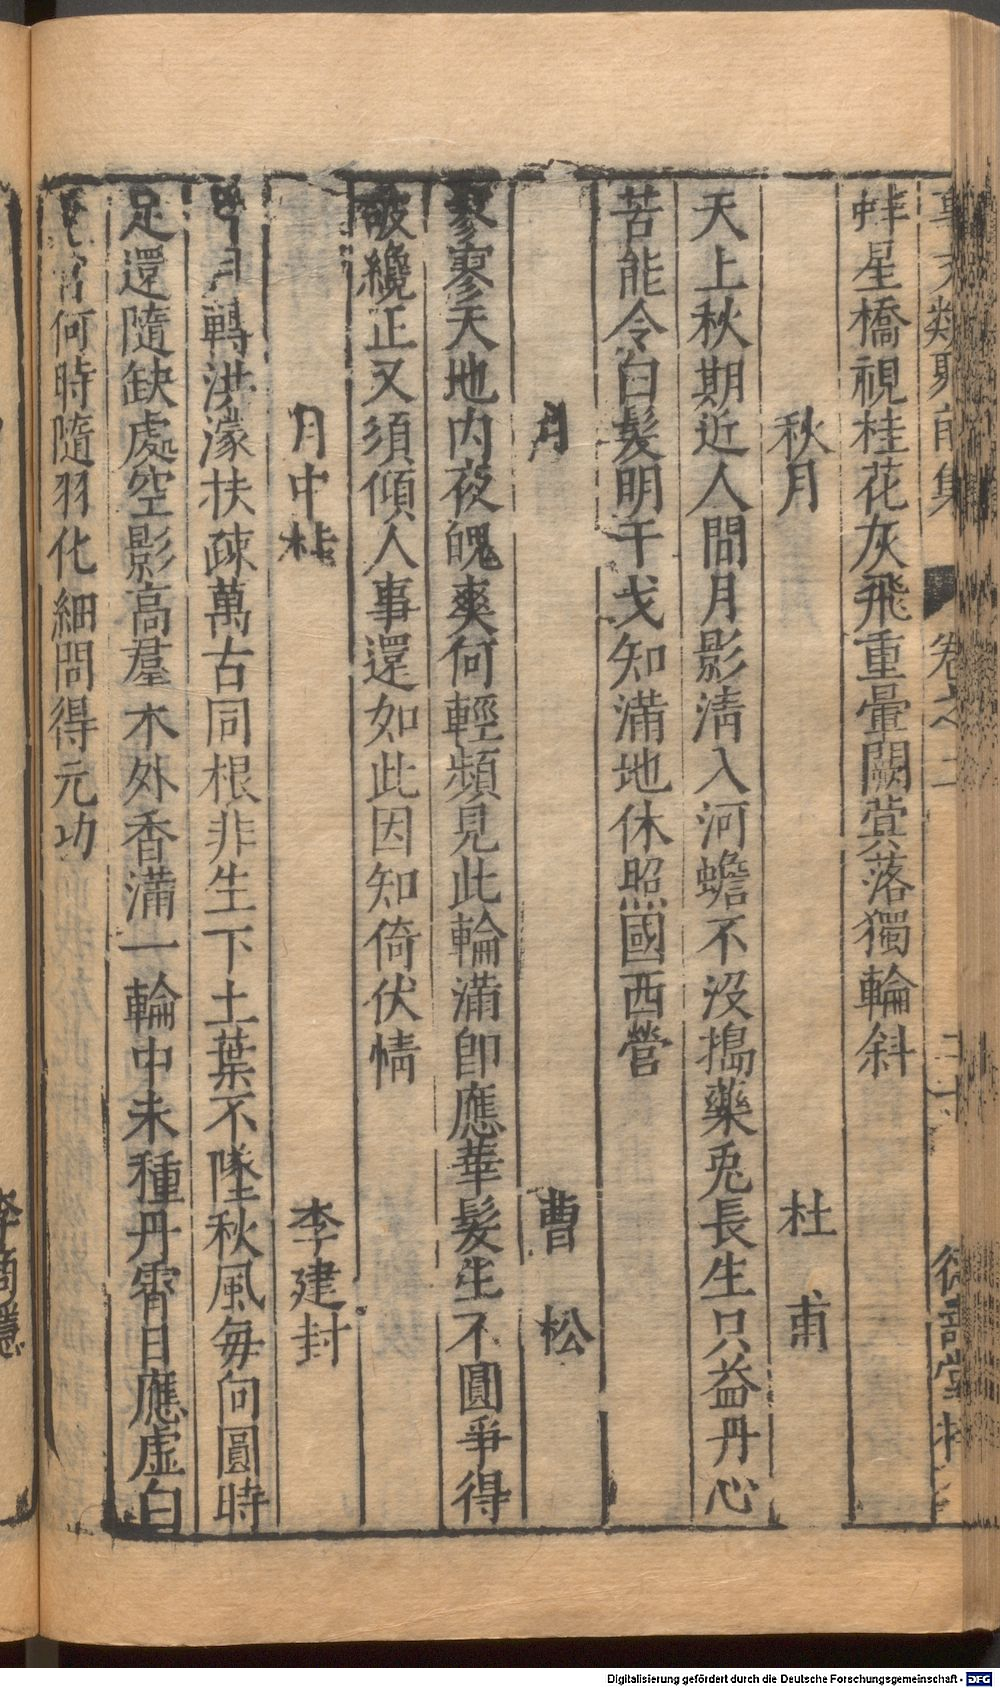 事文類聚前集 卷之二 二十 德壽堂梓
蚌星橋視桂花灰飛重暈闕蓂落獨輪斜
秋月 杜甫
天上秋期近人間月影淸入河蟾不沒搗藥兎長生只益丹心
苦能令白髮明干戈知滿地休照國西營
月 曹松
寥寥天地内夜魄爽何輕頻見此輪滿卽應華髮生不圓爭得
破纔正又須傾人事還如此因知倚伏情
月中桂 李建封
與月轉洪濛扶疎萬古同根非生下土葉不墜秋風每向圓時
足還隨缺處空影高羣木外香滿一輪中未種丹霄日應虛白
兎宮何時隨羽化細問得元功
李商隱
Digitalisierung gefördert durch die Deutsche Forschungsgemeinschaft - DFG